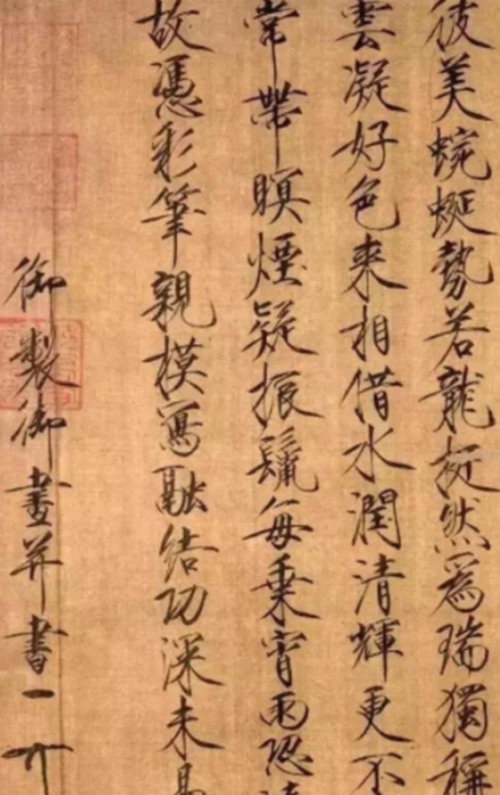 彼美蜿蜒勢若龍挺然為瑞獨稱
雲凝好色来相借水潤清輝更不
常帶暝煙疑振鬣每乘宵雨恐
故憑彩筆親模寫融結功深未易
御製御畫并書一